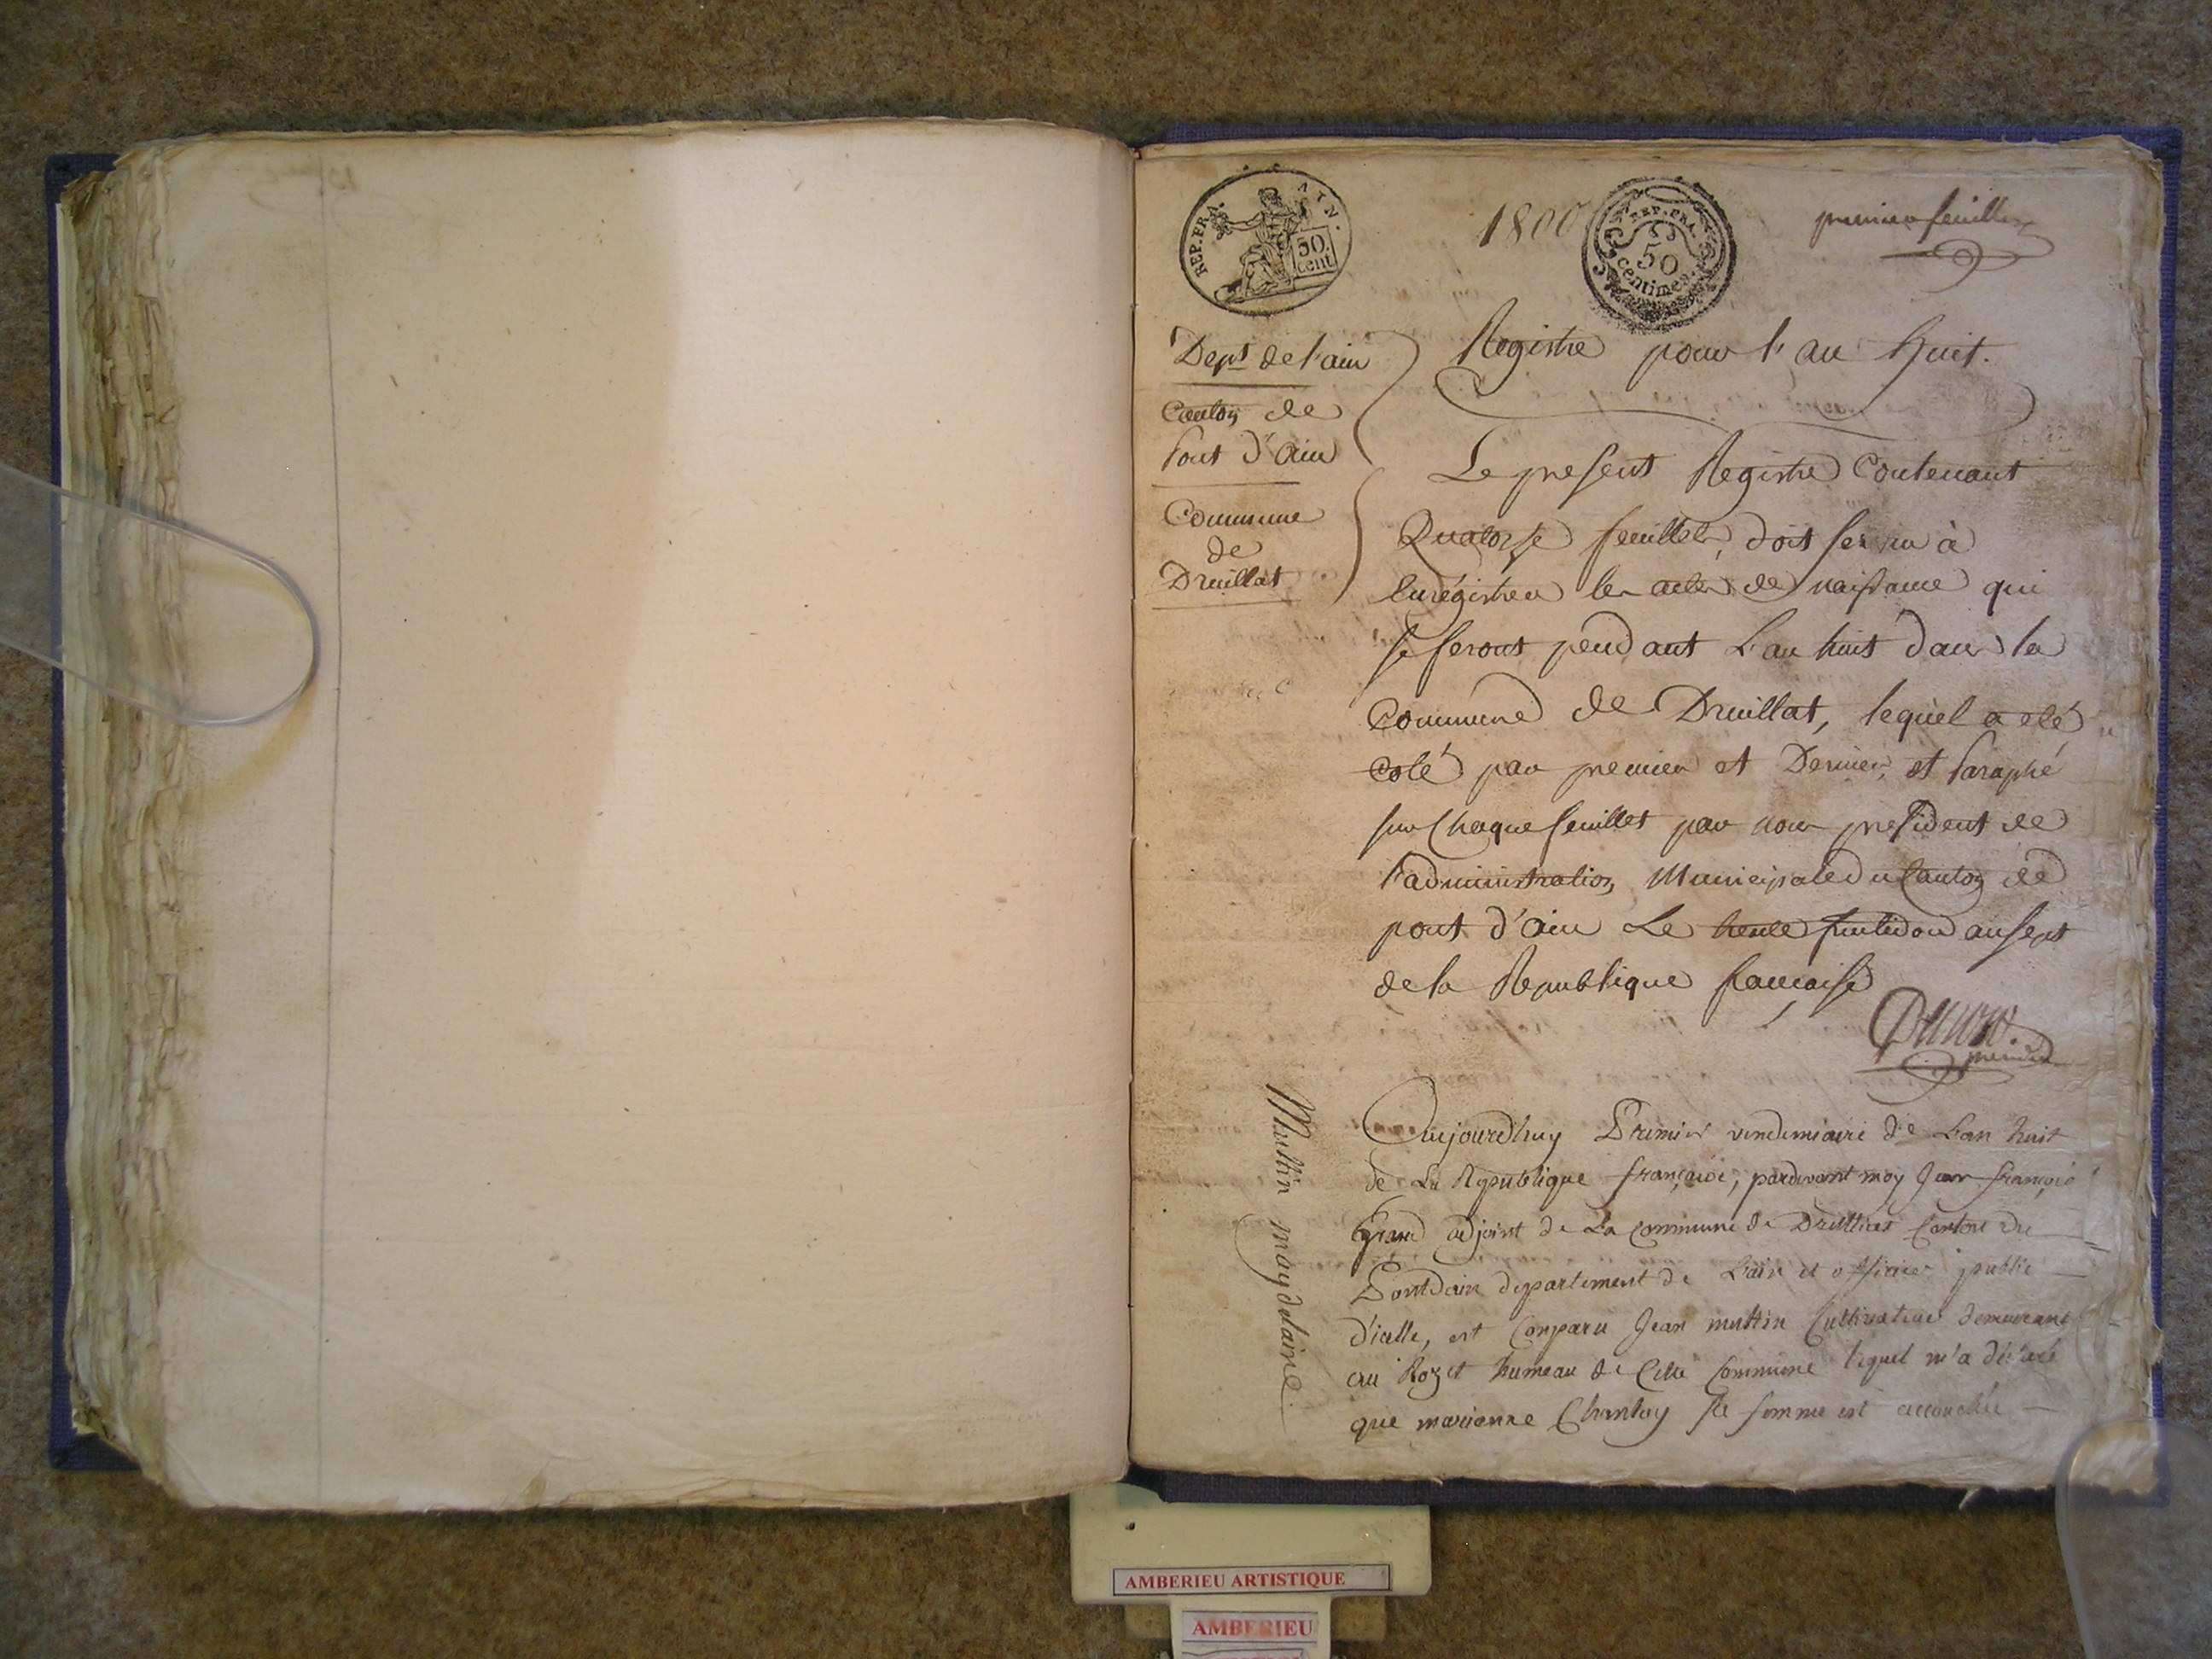 REP. FRA. AIN.
50. cent
1800
REP. FRA. 50 centimes
premier feuillet
Dept de l'ain
Canton de
Pont d'Ain
Commune
de
Druillat
Registre pour l'an huit.
Le present Registre Contenant
Quatorse feuillets, doit servir à
Enrégistrer les actes de naissance qui
se feront pendant L'an huit dans la
Commune de Druillat, lequel a eté
coté par premier et Dernier, et Paraphé
sur Chaque feuillet par nous president de
l'administration Municipale du Canton de
pont d'ain Le trente fructidor an sept
de la Republique francaise
Aujourdhuy Premier vendemiaire de L'an huit
de La Republique française, pardevant moy Jean françois
Grand adjoint de La Commune de Druillat Canton du
Pontdain departement de L'ain et officier public
d'icelle, est Comparu Jean muttin Cultivateur demeurant
au Rozet hameau de Cette Commune lequel m'a déclaré
que marianne Chanloy sa femme est accouchée
Muttin magdelaine
AMBERIEU ARTISTIQUE
AMBERIEU